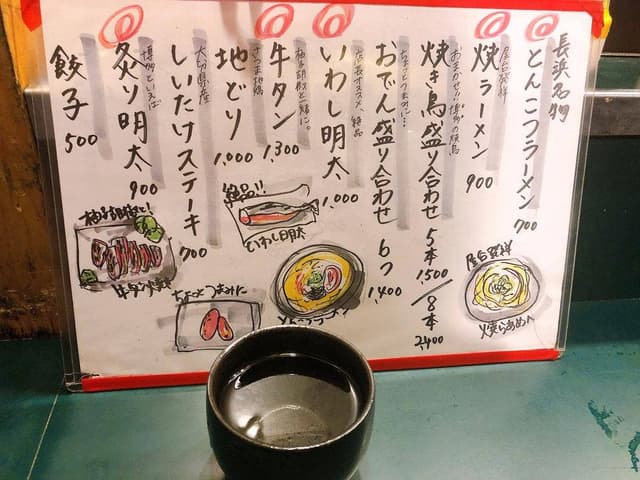 長浜名物
とんこつラーメン 700
屋台発祥
焼ラーメン 900
おまかせ!!博多の焼鳥
焼き鳥盛り合わせ 5本1,500/8本2,400
おでん盛り合わせ 6つ1,400
店長オススメ、絶品
いわし明太 1,000
柚子胡椒と一緒に。
牛タン 1,300
さつま地鶏
地どり 1,000
大分県産
しいたけステーキ 700
博多といえば
炙り明太 900
餃子 500
柚子胡椒と!
牛タン
絶品!!
いわし明太
ちょっとつまみに
とんこつラーメン
屋台発祥
焼らあめん